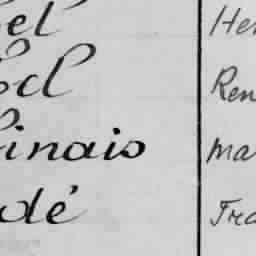 el Hen
od Ren
inais Ma
dé Fra